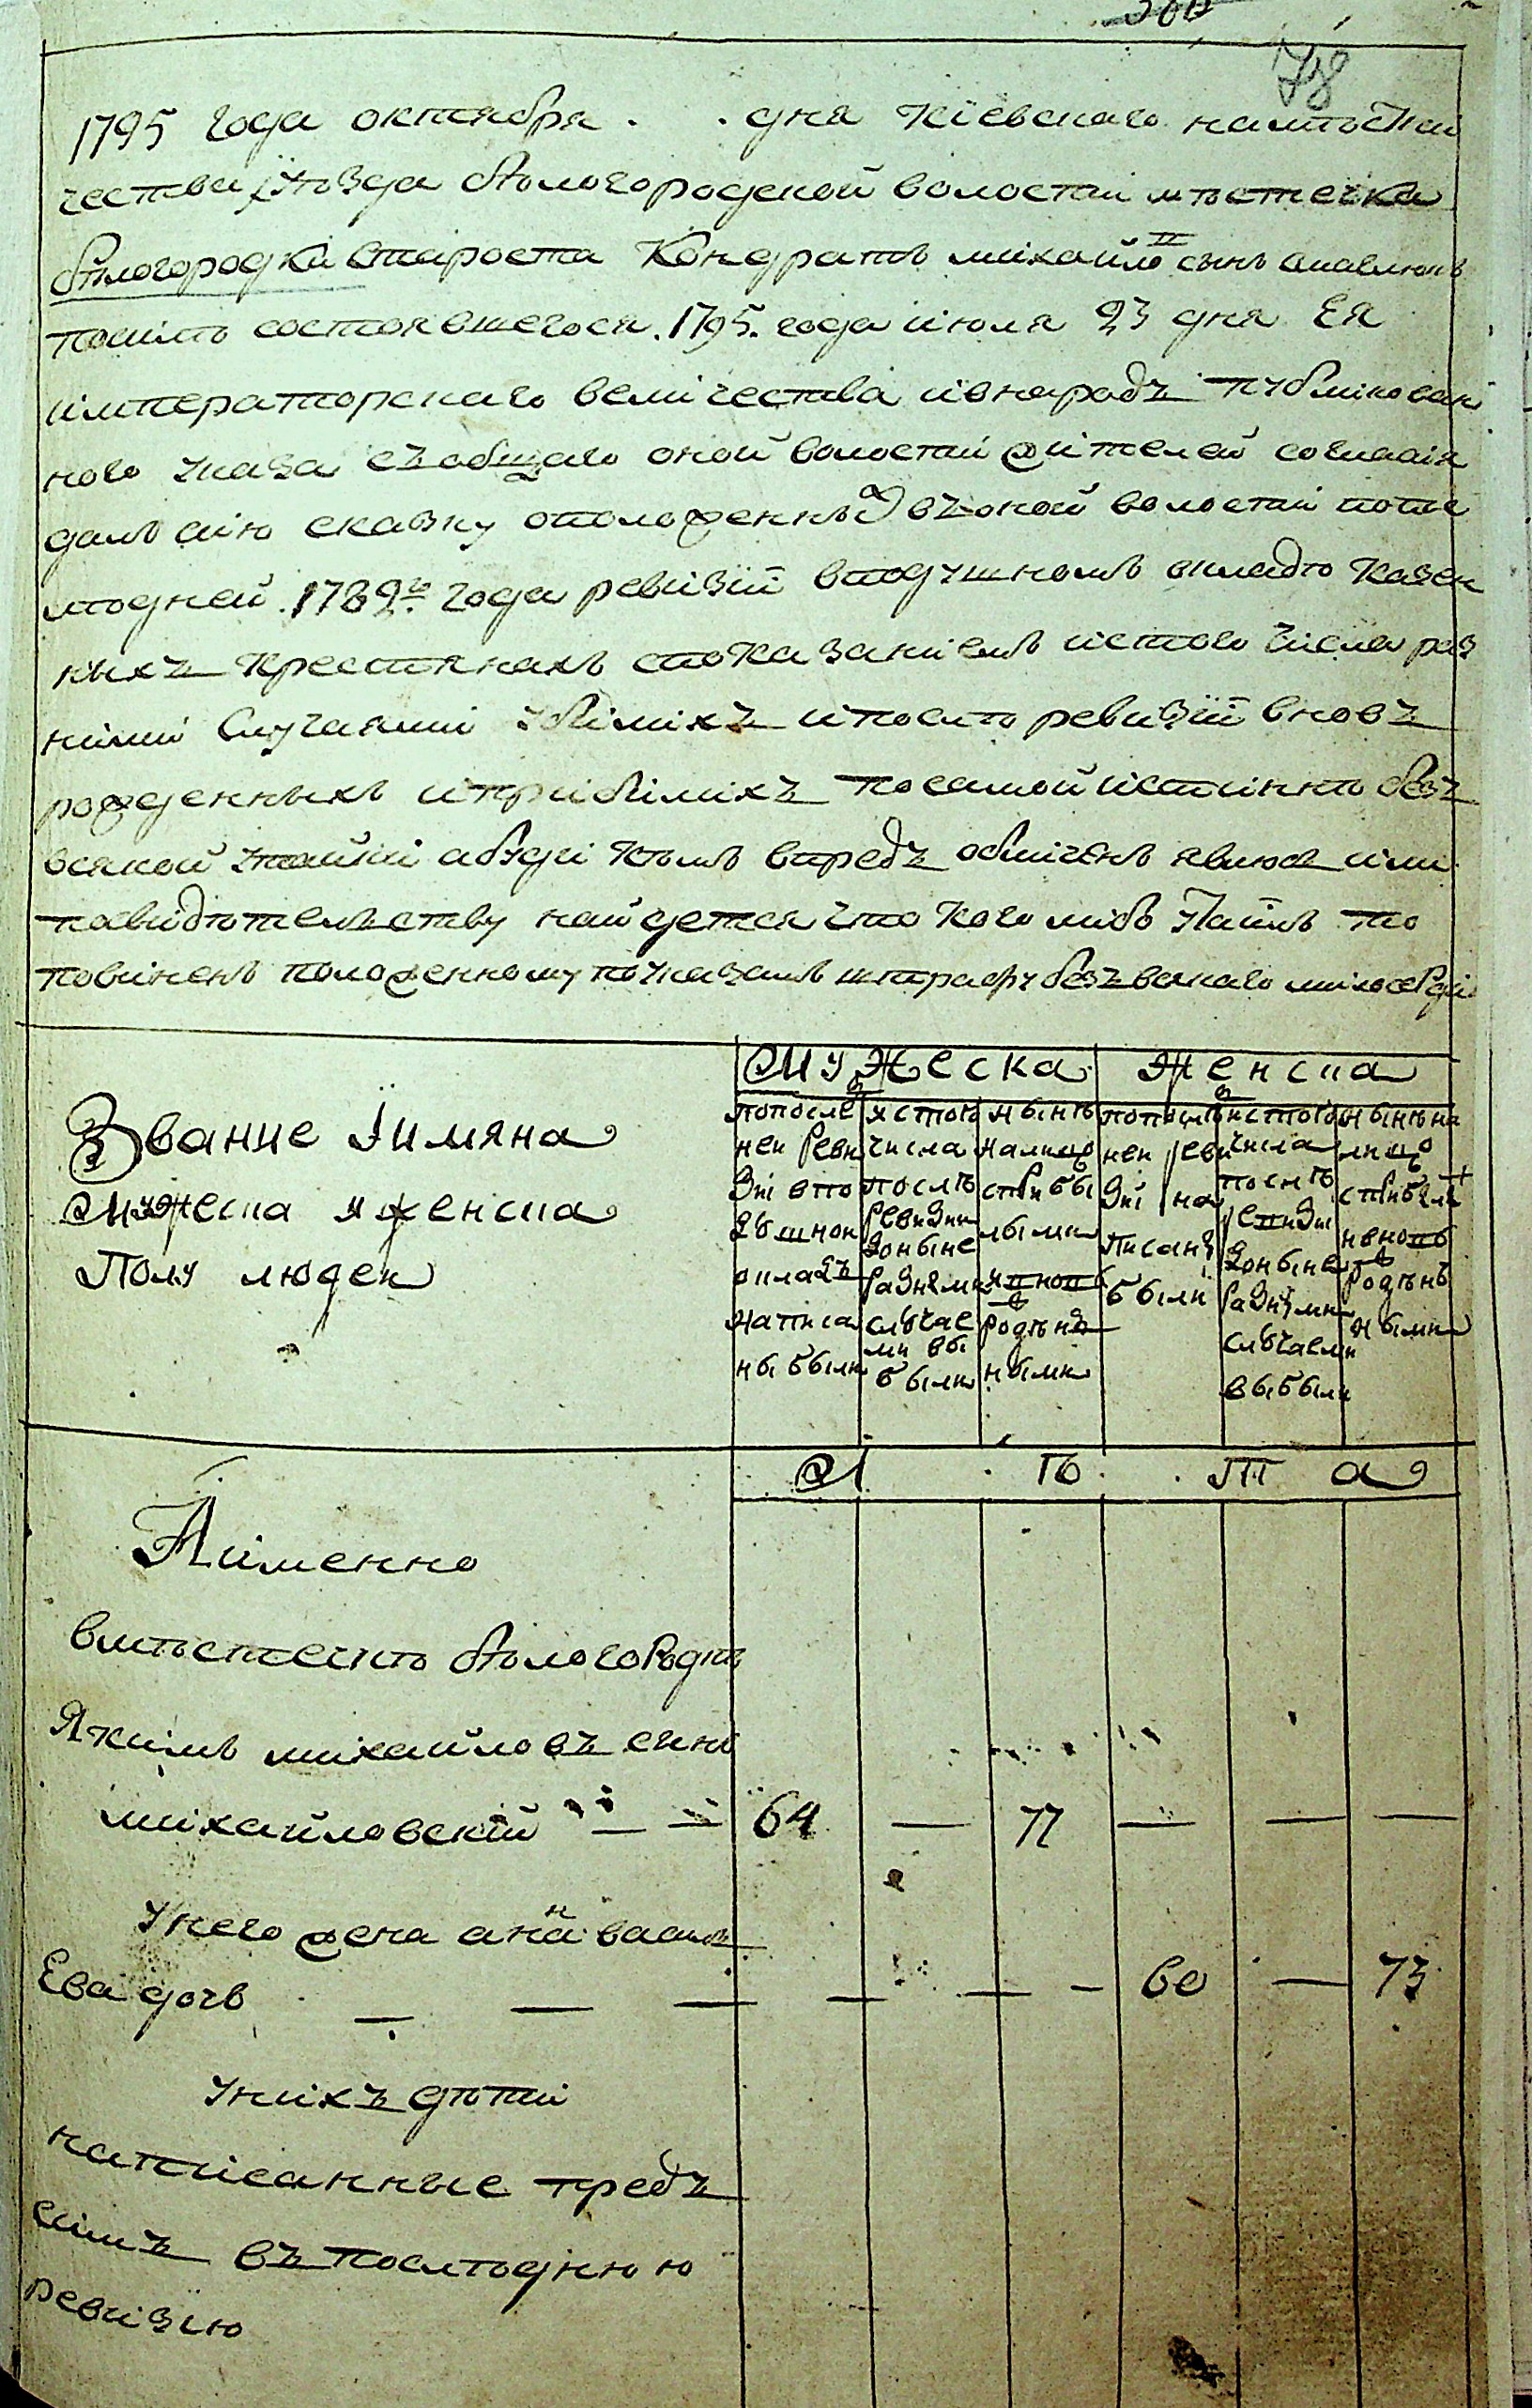 78
1795 года октября . . дня Кіевскаго намѣстни
чества уѣзда бѣлогородской волости мѣстечка
бѣлогородки староста Кондратъ михайло сынъ
после состоявшегося .1795. года июля 23 дня Ея
императорскаго величества и в народъ публікован
ного указа съ общаго оной волости жителей согласія
далъ сию сказку о положенныхъ въ оной волости по посл
ѣдней .1782й года ревизіи в подушномъ окладѣ казен
ныхъ крестянахъ с показаніемъ ис того числа раз
ними случаями убилихъ и после ревизіи вновъ
рожденныхъ и прибилихъ по самой истиннѣ безъ
всякой утайки а буди кѣмъ впредъ обличенъ явлюсь или
по свидѣтелъству найдется что кого либо утаилъ то
повиненъ положенному по указамъ штрафу безъ всякаго милосердія
Звание Ӥимяна
Мужеска и женска
Полу людеи
Мужеска
Женска
по после
неи реви
зиі в по
душнои
окладъ
написа
ны были
ис того
числа
послѣ
ревизии
доныне
разными
случае
ми вы
были
нынѣ
налицо
с прибы
лыми
и вновь
родѣнъ
ными
по послѣ
неи реви
зиі на
писанъ
были
ис того
числа
послѣ
ревизиі
доныне
разными
случаеми
выбыли
нынѣ на
лицо
с прибылѣ
и вновь
родѣнъ
ными
Л ѣ т а
Аименно
в мѣстечкѣ бѣлогородкѣ
Якимъ михайловъ синъ
михайловскій — — 64 — 77 — — —
У него жена анна василе
Ева дочь — — — — — — 60 — 73
У нихъ дѣти
написанные предъ
симъ въ послѣднюю
ревизію